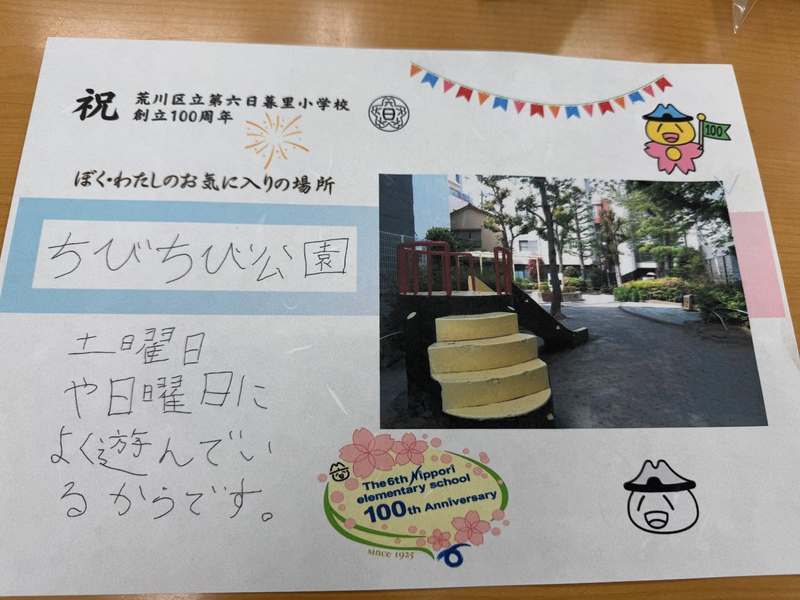 祝
荒川区立第六日暮里小学校
創立100周年
日
100
ぼく・わたしのお気に入りの場所
ちびちび公園
土曜日
や日曜日に
よく遊んでい
るからです。
The 6th Nippori
elementary school
100th Anniversary
since 1925